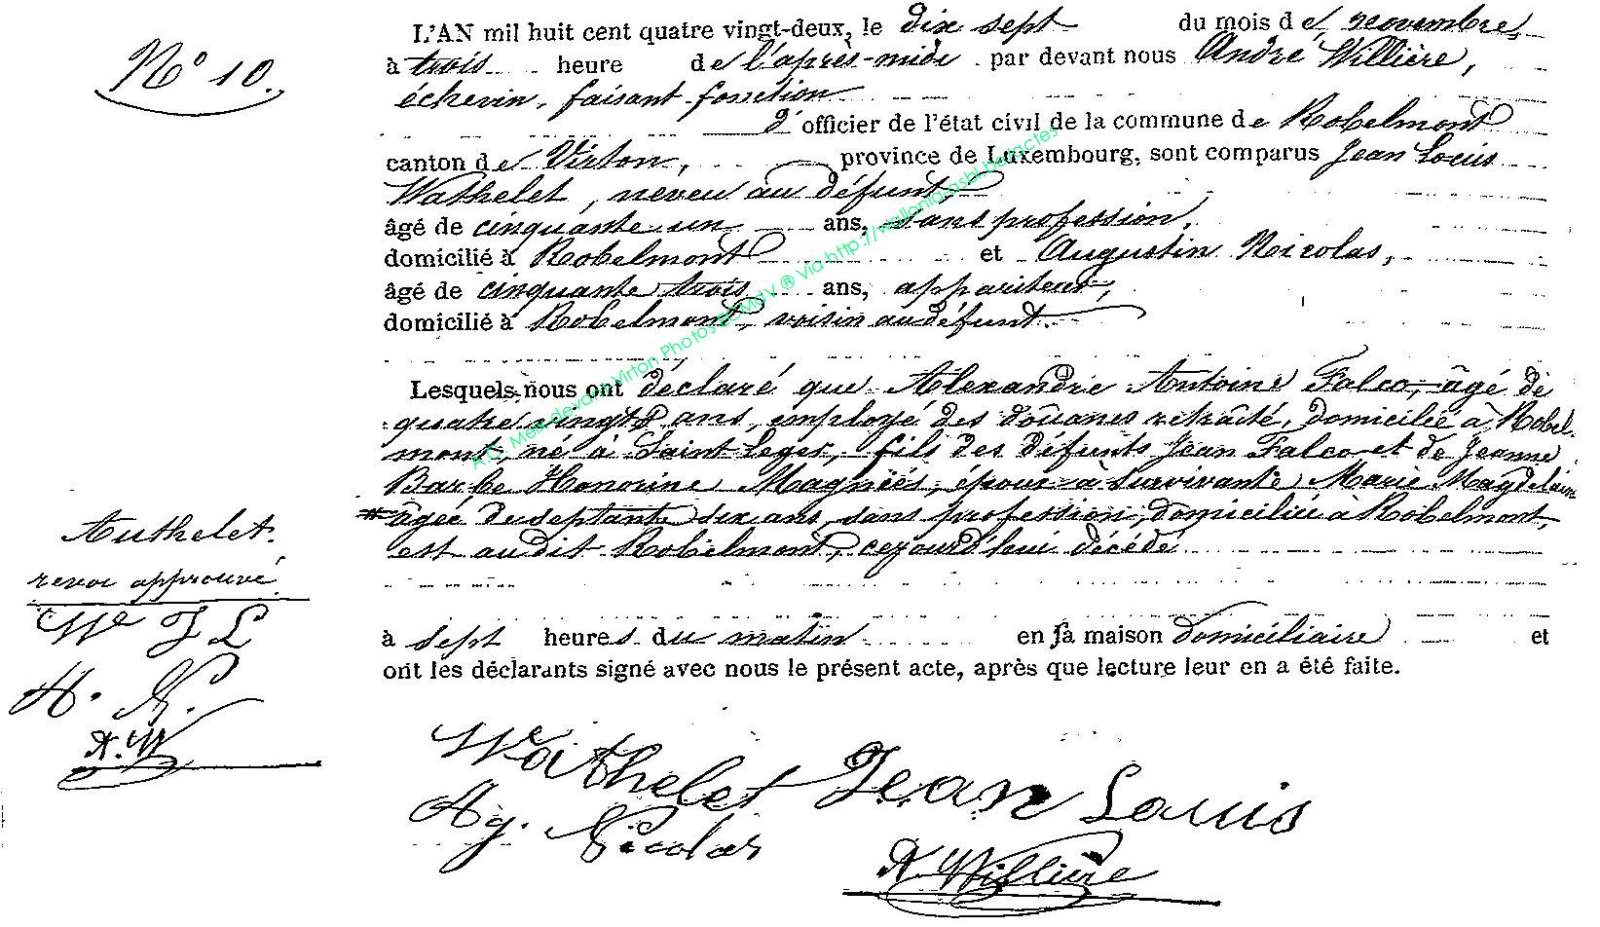 N° 10.
L'AN mil huit cent quatre vingt-deux, le dix sept du mois de novembre,
à trois heure de l'après-midi par devant nous André Willière,
échevin, faisant fonction
d'officier de l'état civil de la commune de Robelmont
canton de Virton, province de Luxembourg, sont comparus Jean Louis
Wathelet, neveu au défunt
âgé de cinquante un ans, sans profession,
domicilié à Robelmont et Augustin Nicolas,
âgé de cinquante trois ans, appariteur,
domicilié à Robelmont, voisin au défunt.
Lesquels nous ont déclaré que Alexandre Antoine Falco, âgé de
quatre vingts ans, employé des douanes retraité, domicilié à Robel
mont, né à Saint Leger, fils des défunts Jean Falco et de Jeanne
Barbe Honorine Magniés, époux à survivante Marie Magdelaine
âgée de septante six ans, sans profession, domiciliée à Robelmont,
est au dit Robelmont, cejourd'hui décédé
à sept heures du matin en sa maison domiciliaire et
ont les déclarants signé avec nous le présent acte, après que lecture leur en a été faite.
Authelet.
approuvé
We J L
A. N.
A. W
Wathelet Jean Louis
Ag. Nicolas
A. Willière
Photos via http://wallonia-asbl.be/actes